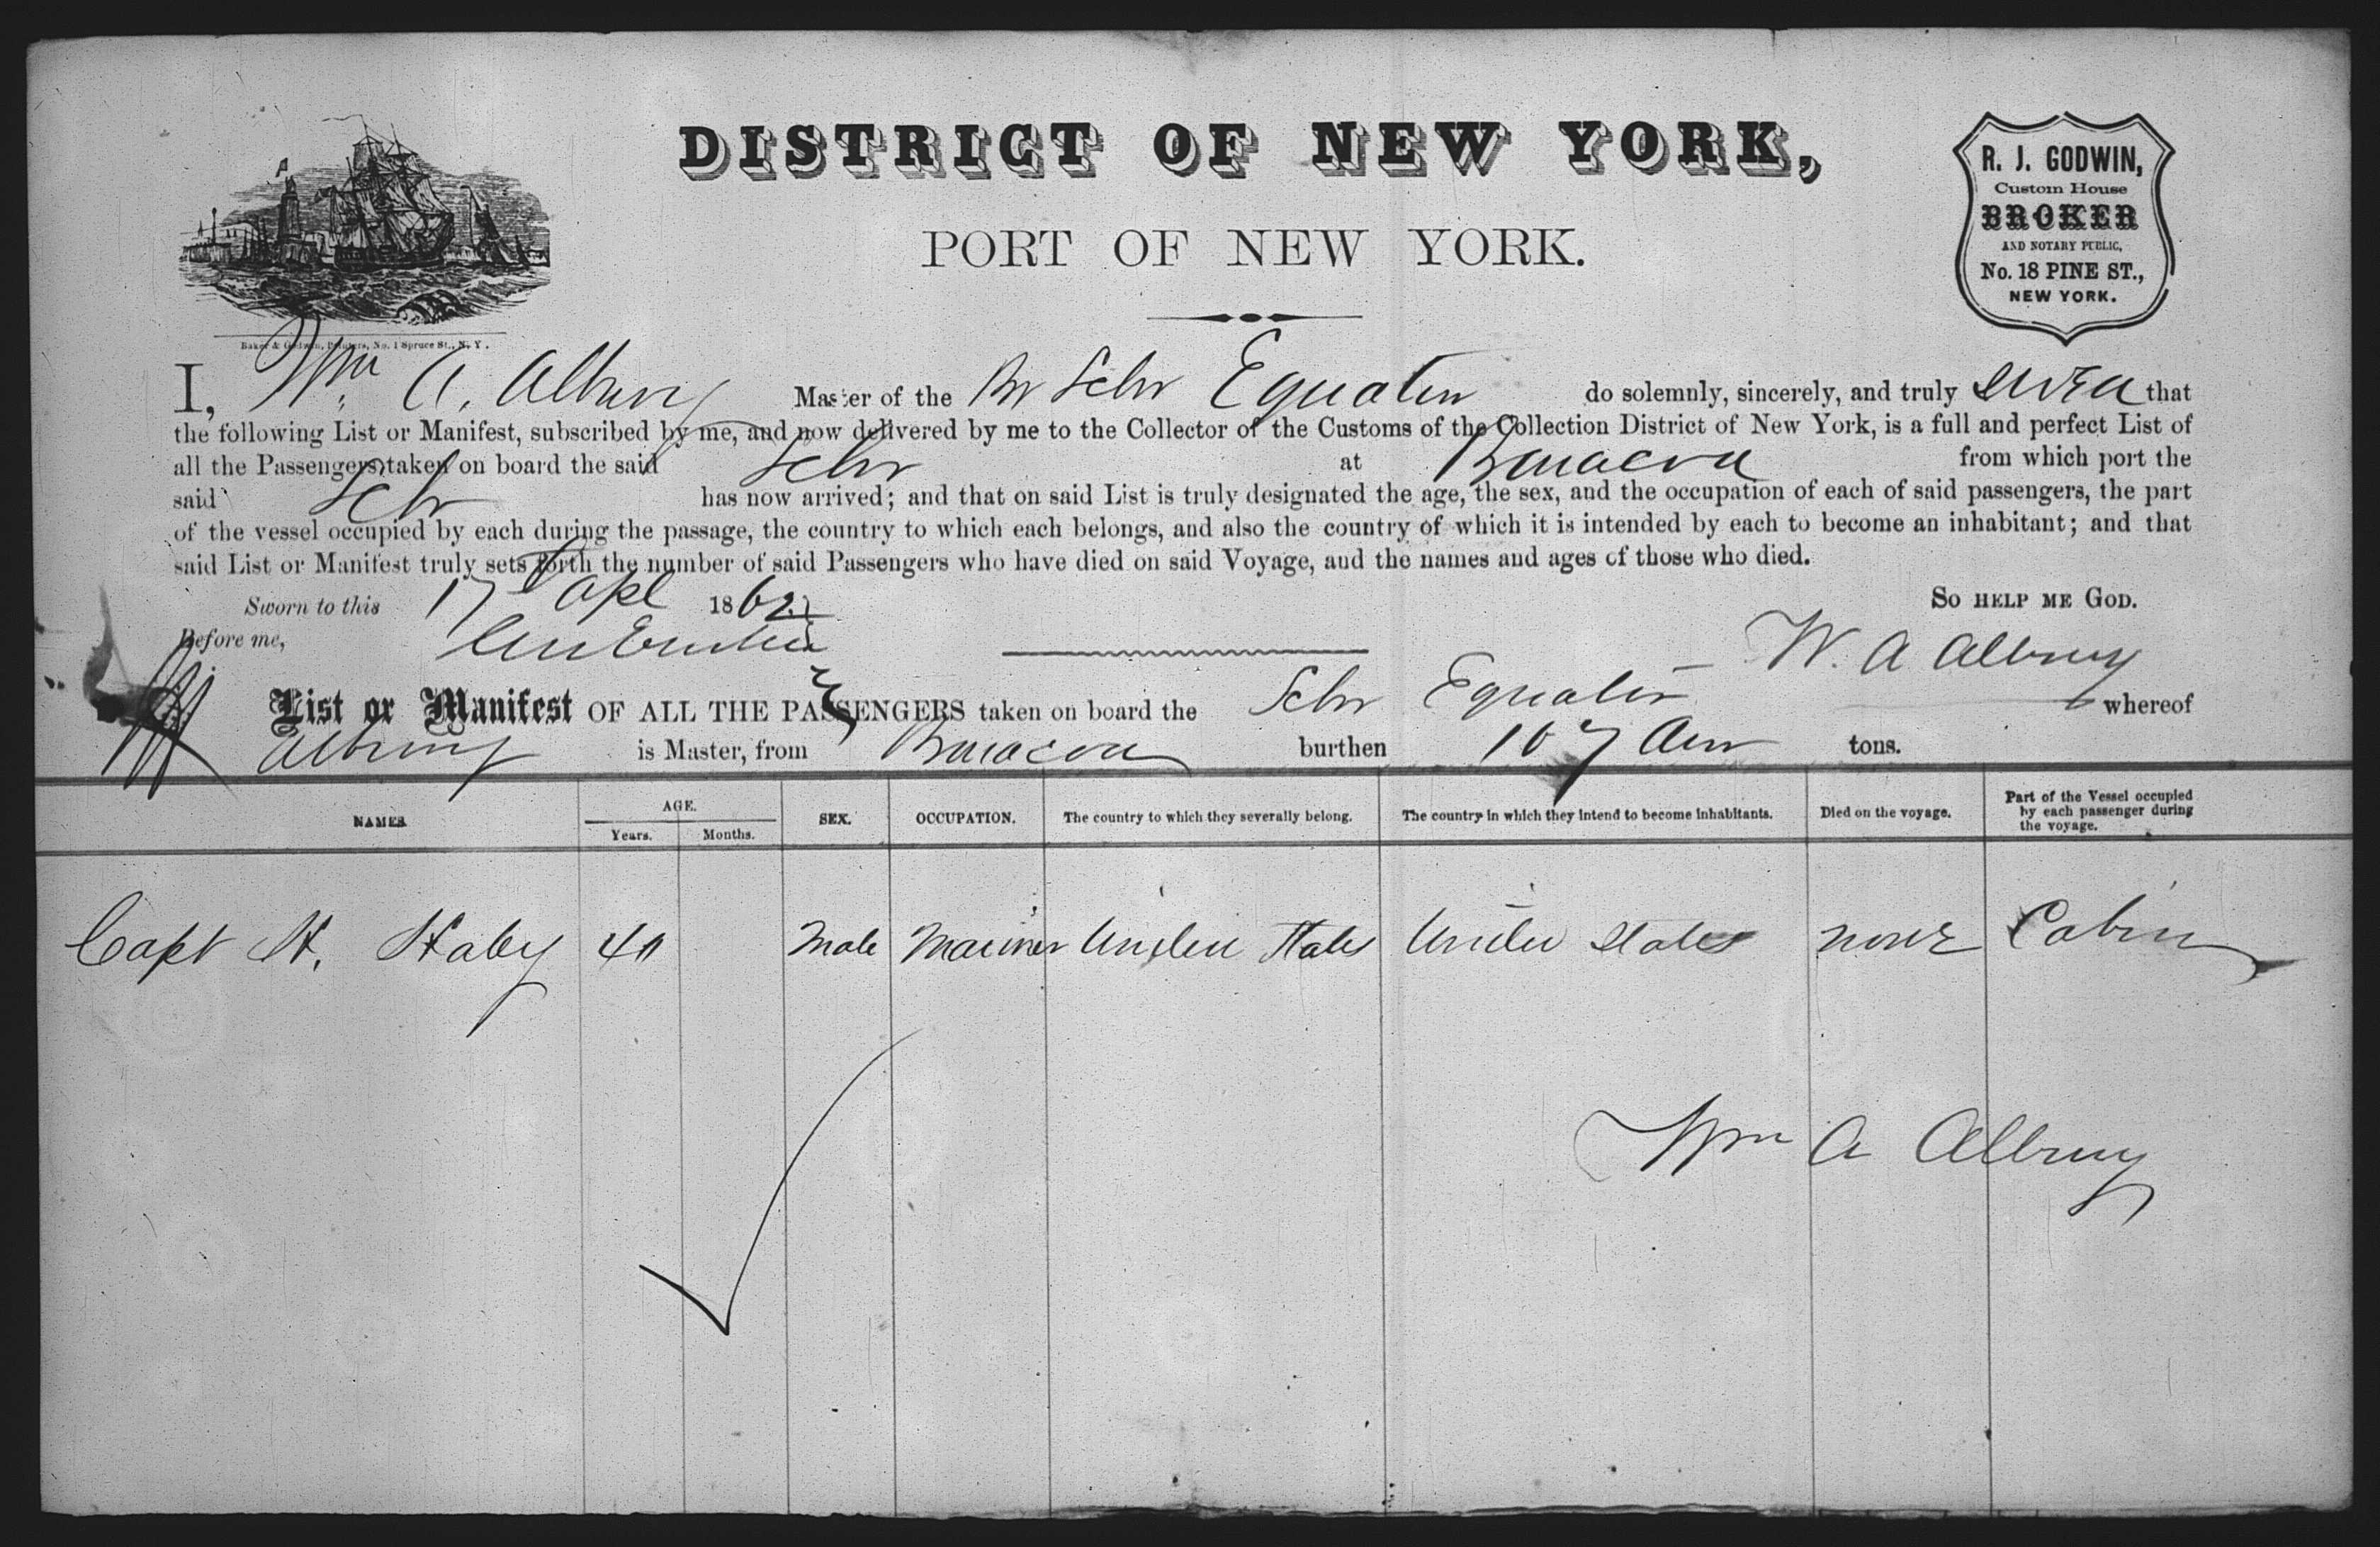 DISTRICT OF NEW YORK,
PORT OF NEW YORK.
R. J. GODWIN,
Custom House
BROKER
AND NOTARY PUBLIC,
No. 18 PINE ST.,
NEW YORK.
Baker & Godwin, Printers, No. 1 Spruce St., N. Y.
I, Wm A. Albury Master of the Br Schr Equator do solemnly, sincerely, and truly swear that
the following List or Manifest, subscribed by me, and now delivered by me to the Collector of the Customs of the Collection District of New York, is a full and perfect List of
all the Passengers taken on board the said Schr at Baracoa from which port the
said Schr has now arrived; and that on said List is truly designated the age, the sex, and the occupation of each of said passengers, the part
of the vessel occupied by each during the passage, the country to which each belongs, and also the country of which it is intended by each to become an inhabitant; and that
said List or Manifest truly sets forth the number of said Passengers who have died on said Voyage, and the names and ages of those who died.
Sworn to this 17 Apl 1862 SO HELP ME GOD.
Before me, W. A Albury
List or Manifest OF ALL THE PASSENGERS taken on board the Schr Equator whereof
Albury is Master, from Baracoa burthen 107 tons.
NAMES AGE. SEX. OCCUPATION. The country to which they severally belong. The country in which they intend to become inhabitants. Died on the voyage. Part of the Vessel occupied by each passenger during the voyage.
Years. Months.
Capt H. Staby 40 Male Mariner United States United States none Cabin
Wm A Albury